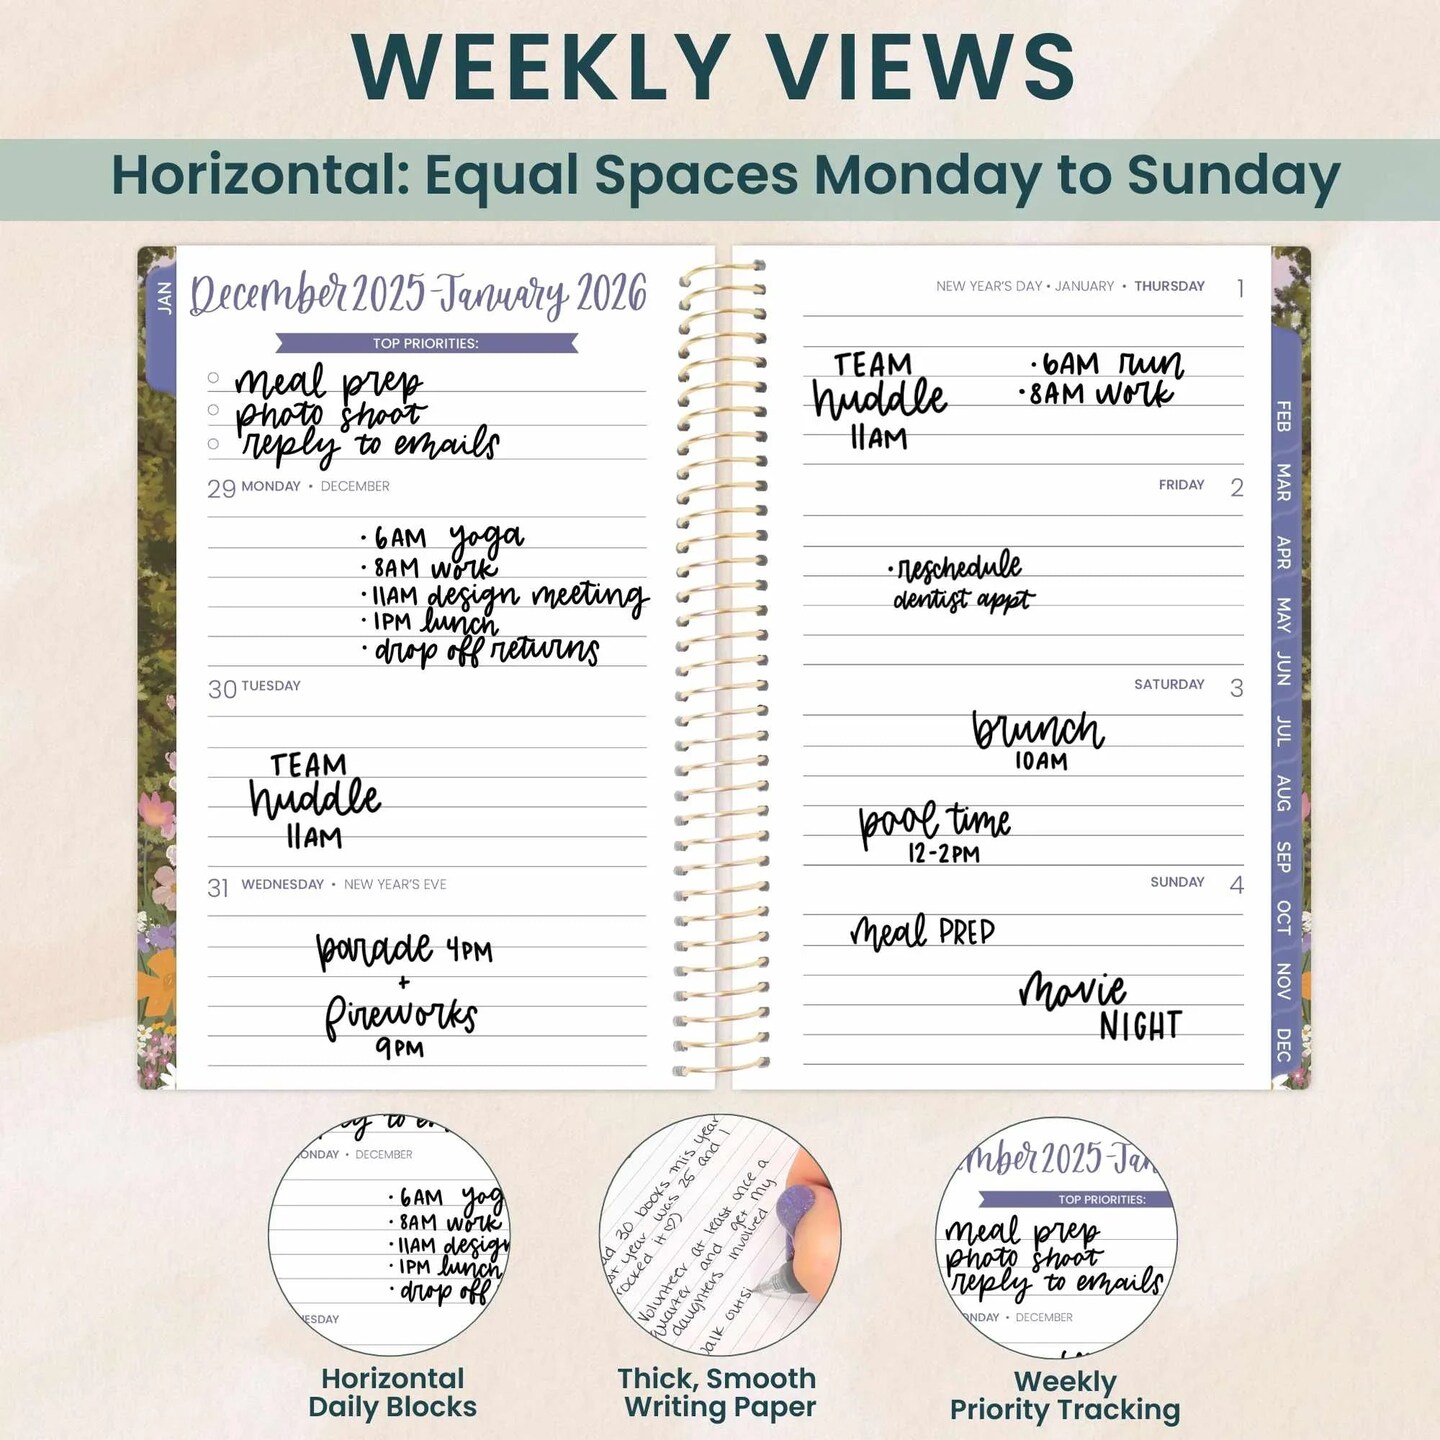 WEEKLY VIEWS
Horizontal: Equal Spaces Monday to Sunday
JAN
December 2025-January 2026
TOP PRIORITIES:
meal prep
photo shoot
reply to emails
29 MONDAY • DECEMBER
• 6AM yoga
• 8AM work
• 11AM design meeting
• 1PM lunch
• drop off returns
30 TUESDAY
TEAM
huddle
11AM
31 WEDNESDAY • NEW YEAR'S EVE
parade 4PM
+
fireworks
9PM
NEW YEAR'S DAY • JANUARY • THURSDAY 1
TEAM
huddle
11AM
• 6AM run
• 8AM work
FRIDAY 2
• reschedule
dentist appt
SATURDAY 3
brunch
10AM
pool time
12-2PM
SUNDAY 4
meal PREP
movie
NIGHT
FEB
MAR
APR
MAY
JUN
JUL
AUG
SEP
OCT
NOV
DEC
y to em
ONDAY • DECEMBER
• 6AM yog
• 8AM work
• 11AM design
• 1PM lunch
• drop off
ESDAY
Horizontal
Daily Blocks
ad 30 books this year
st year was 25 and I
rocked it ♡)
Volunteer at least once a
quarter and get my
daughters involved
alk outsi
Thick, Smooth
Writing Paper
mber 2025-Jan
TOP PRIORITIES:
meal prep
photo shoot
reply to emails
ONDAY • DECEMBER
Weekly
Priority Tracking